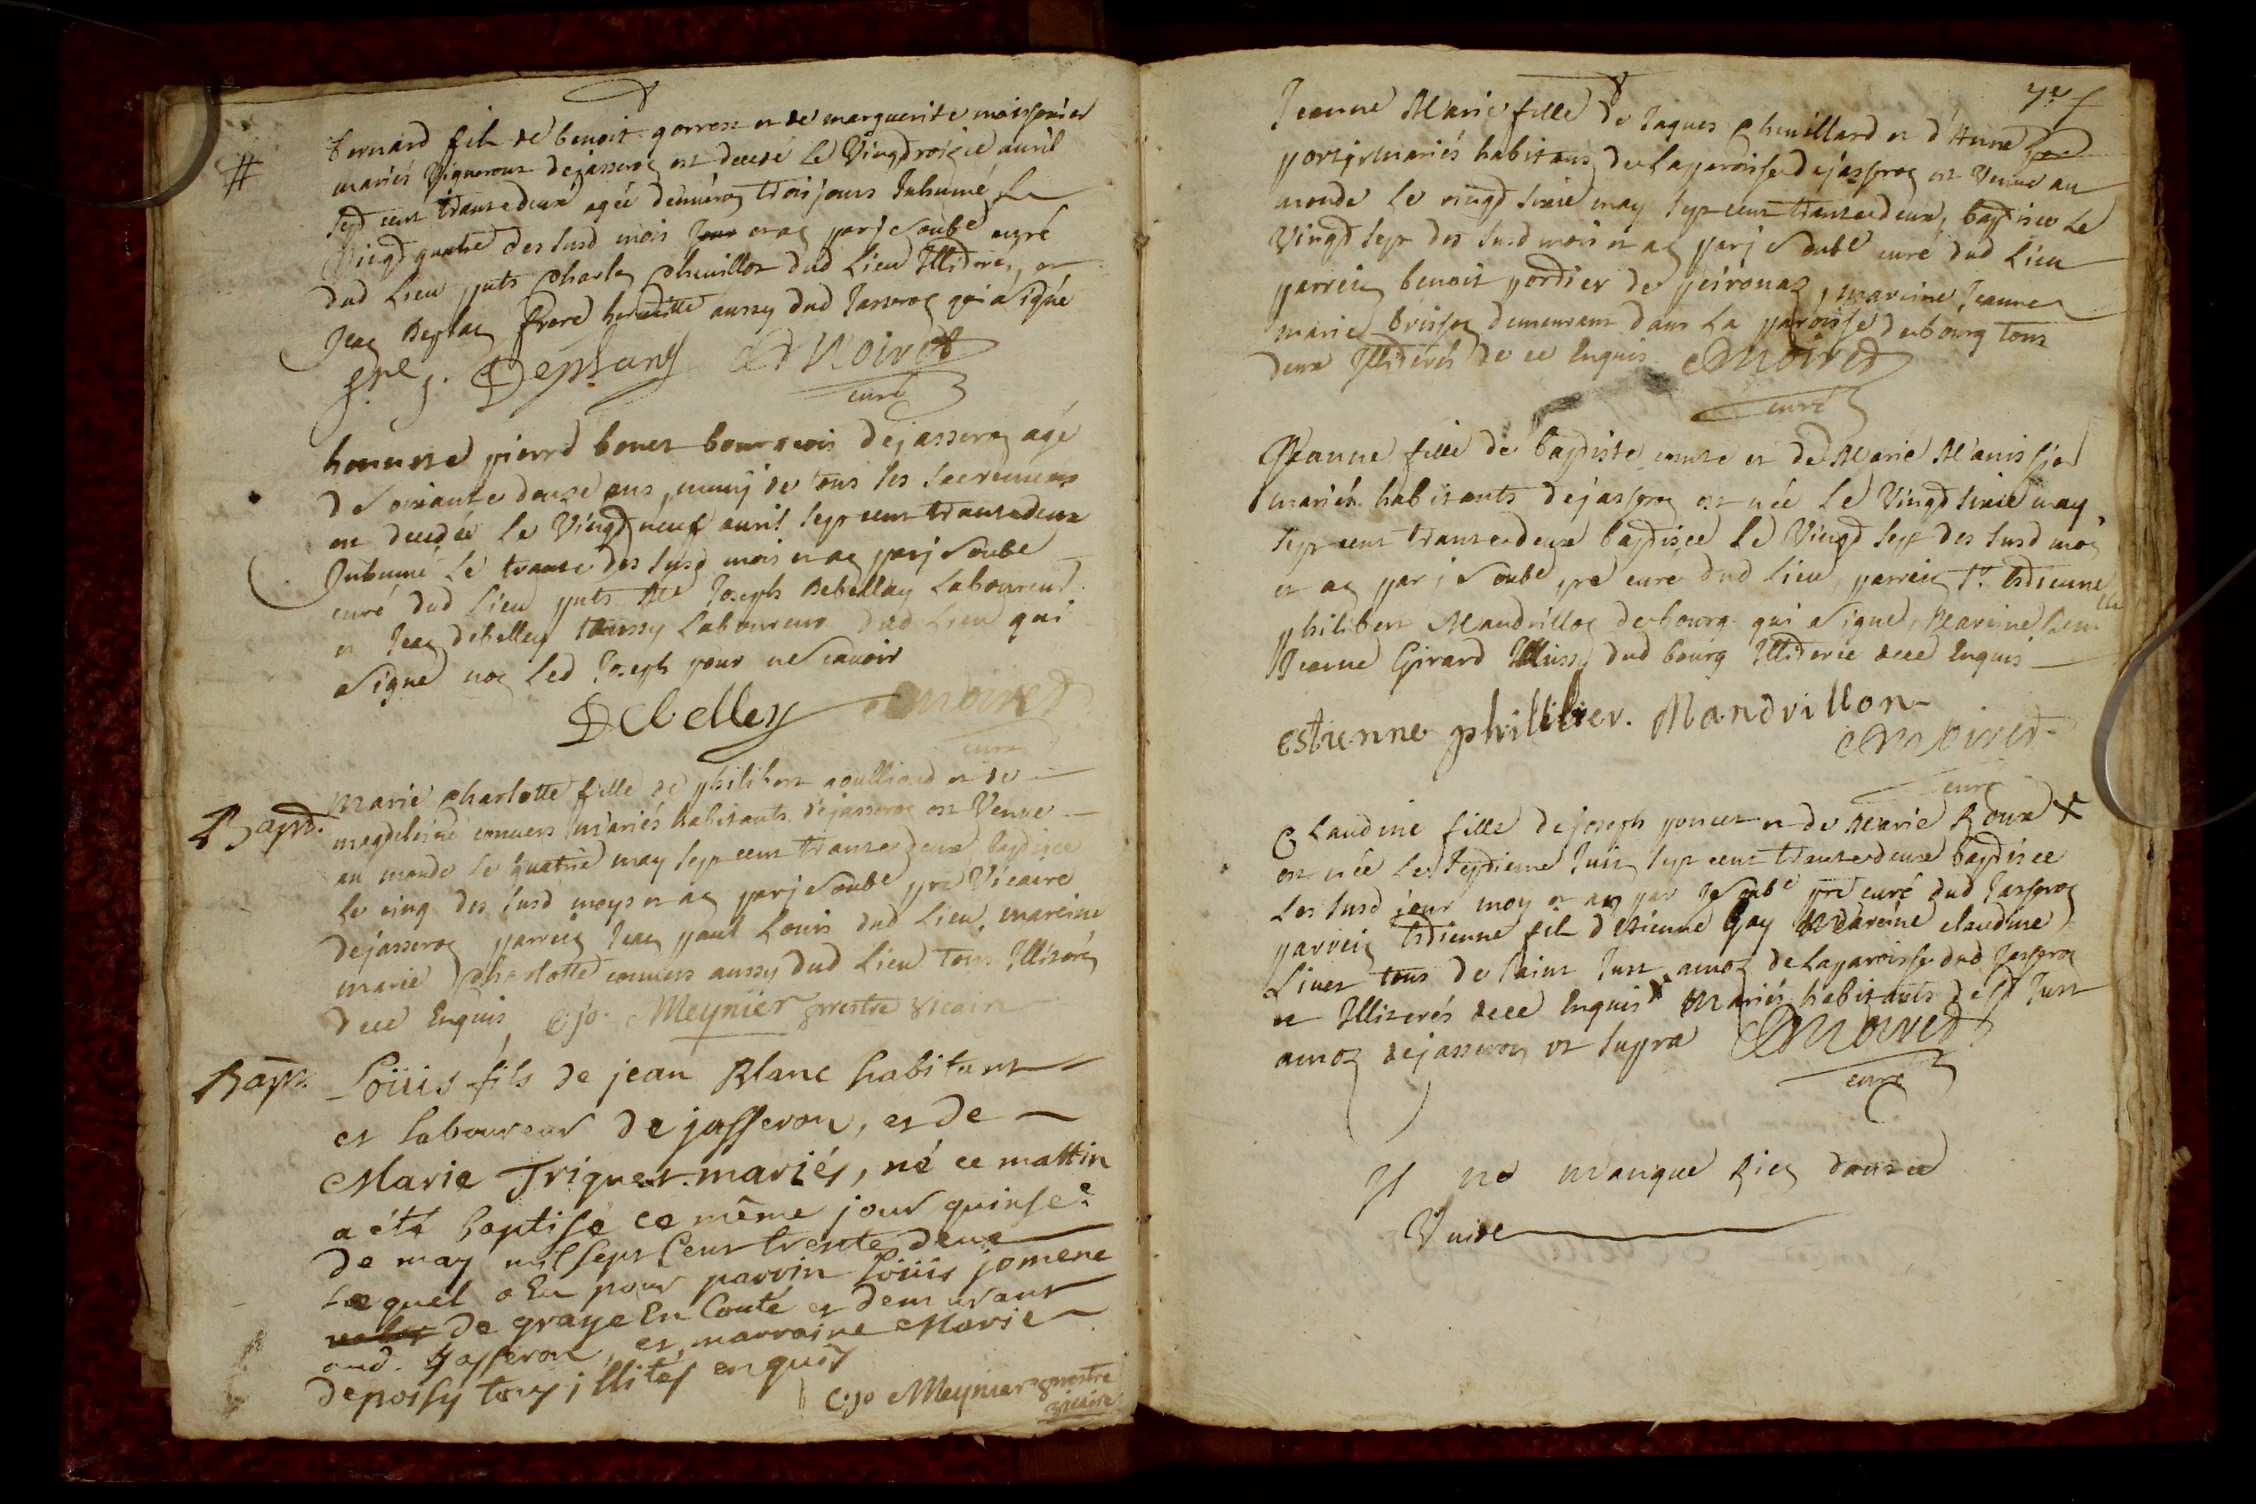 #
bernard fils de benoit gorron et de marguerite moissonier
mariés Vignerons dejasseron est decedé le Vingdroisie auril
sept cent trantedeux agée denuiron trois jours Inhumé Le
Vingd quatre des susd mois et an par je soube curé
dud Lieu pnts Charles Cheuillot dud Lieu Illiterés, et
Jean Deplan frere hermitte aussy dud Jasseron qui a signé
Deplang Noiret
curé
honneste pierre bonet bourgeois dejasseron agé
de soixante douse ans, muny de tous les sacremens
est decedée le Vingd neuf auril sept cent trantedeux
Inhumé Le trante des susd mois et an par je soube
curé dud Lieu pnts Me Joseph Debelley Laboureur
et Jean debelley aussy Laboureur dud Lieu qui
a signé non led Joseph pour ne scauoir
Debelley Noiret
curé
Bapt.
Marie Charlotte fille de philibert goulliard et de
magdeleine conuers mariés habitants dejasseron est Venue
au monde le quatrie may sept cent trantedeux baptisée
le cinq des susd moys et an par je soube pre Vicaire
dejasseron parrein Jean paul Louis dud Lieu, mareine
marie Charlotte conuers aussy dud Lieu tous Illiterés
dece Enquis C. jo. Meynier prestre vicair
Bapt.
Loüis fils de jean Blanc habitant
et laboureur de jasseron, et de
Marie Triquet mariés, né ce mattin
a été baptisé ce même jour quinse
de may mil sept cent trente deux
Lequel a Eu pour parrin Loüis jomene
de graye En Conté et demeurant
aud. Jasseron, et marraine Marie
depoisy tous illités enquis
C. jo Meynier prestre
vicaire
Jeanne Marie fille de Jaques Cheuillard et d'Anne
mariés habitans de la paroisse dejasseron est Venue au
monde le vingd sixie may sept cent trantedeux, baptisee Le
Vingd sept des susd mois et an par je soube curé dud Lieu
parrein benoit pordier de peironas, mareine Jeanne
marie brisson demeurant dans La paroisse de bourg tous
deux Illiterés de ce Enquis Noiret
curé
Jeanne fille de baptiste comte et de Marie Manissier
mariés habitants dejasseron est née Le Vingd sixie may
sept cent trantedeux baptisee Le Vingd sept des susd mois
et an par je soube pre curé dud Lieu, parrein Sr Etienne
philibert Mandrillon de bourg qui a signé, Mareine
Jeanne Girard aussy dud bourg Illiterée dece Enquis
estienne philliber. Mandrillon
Noiret
curé
Claudine fille de joseph poncet et de Marie Roux X
est née Le septieme Juin sept cent trantedeux baptisee
Les susd jour moy et an par je soube pre curé dud Jasseron
parrein Etienne fils d'Etienne Gay Mareine claudine
Liuet tous de saint Just annex de La paroisse dud Jasseron
et Illiterés dece Enquis X Mariés habitants de st Just
annex dejasseron ut supra Noiret
curé
Il ne manque Rien dans ce
Vuide